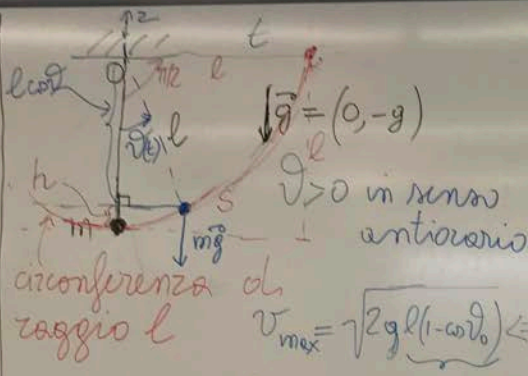 z
t
l cos ϑ
π/2
l
ϑ(t)
l
g⃗ = (0, -g)
l
h
s
ϑ > 0 in senso
antiorario
m
mg⃗
circonferenza di
raggio l
v_max = √2gl(1-cosϑ₀) ⇐